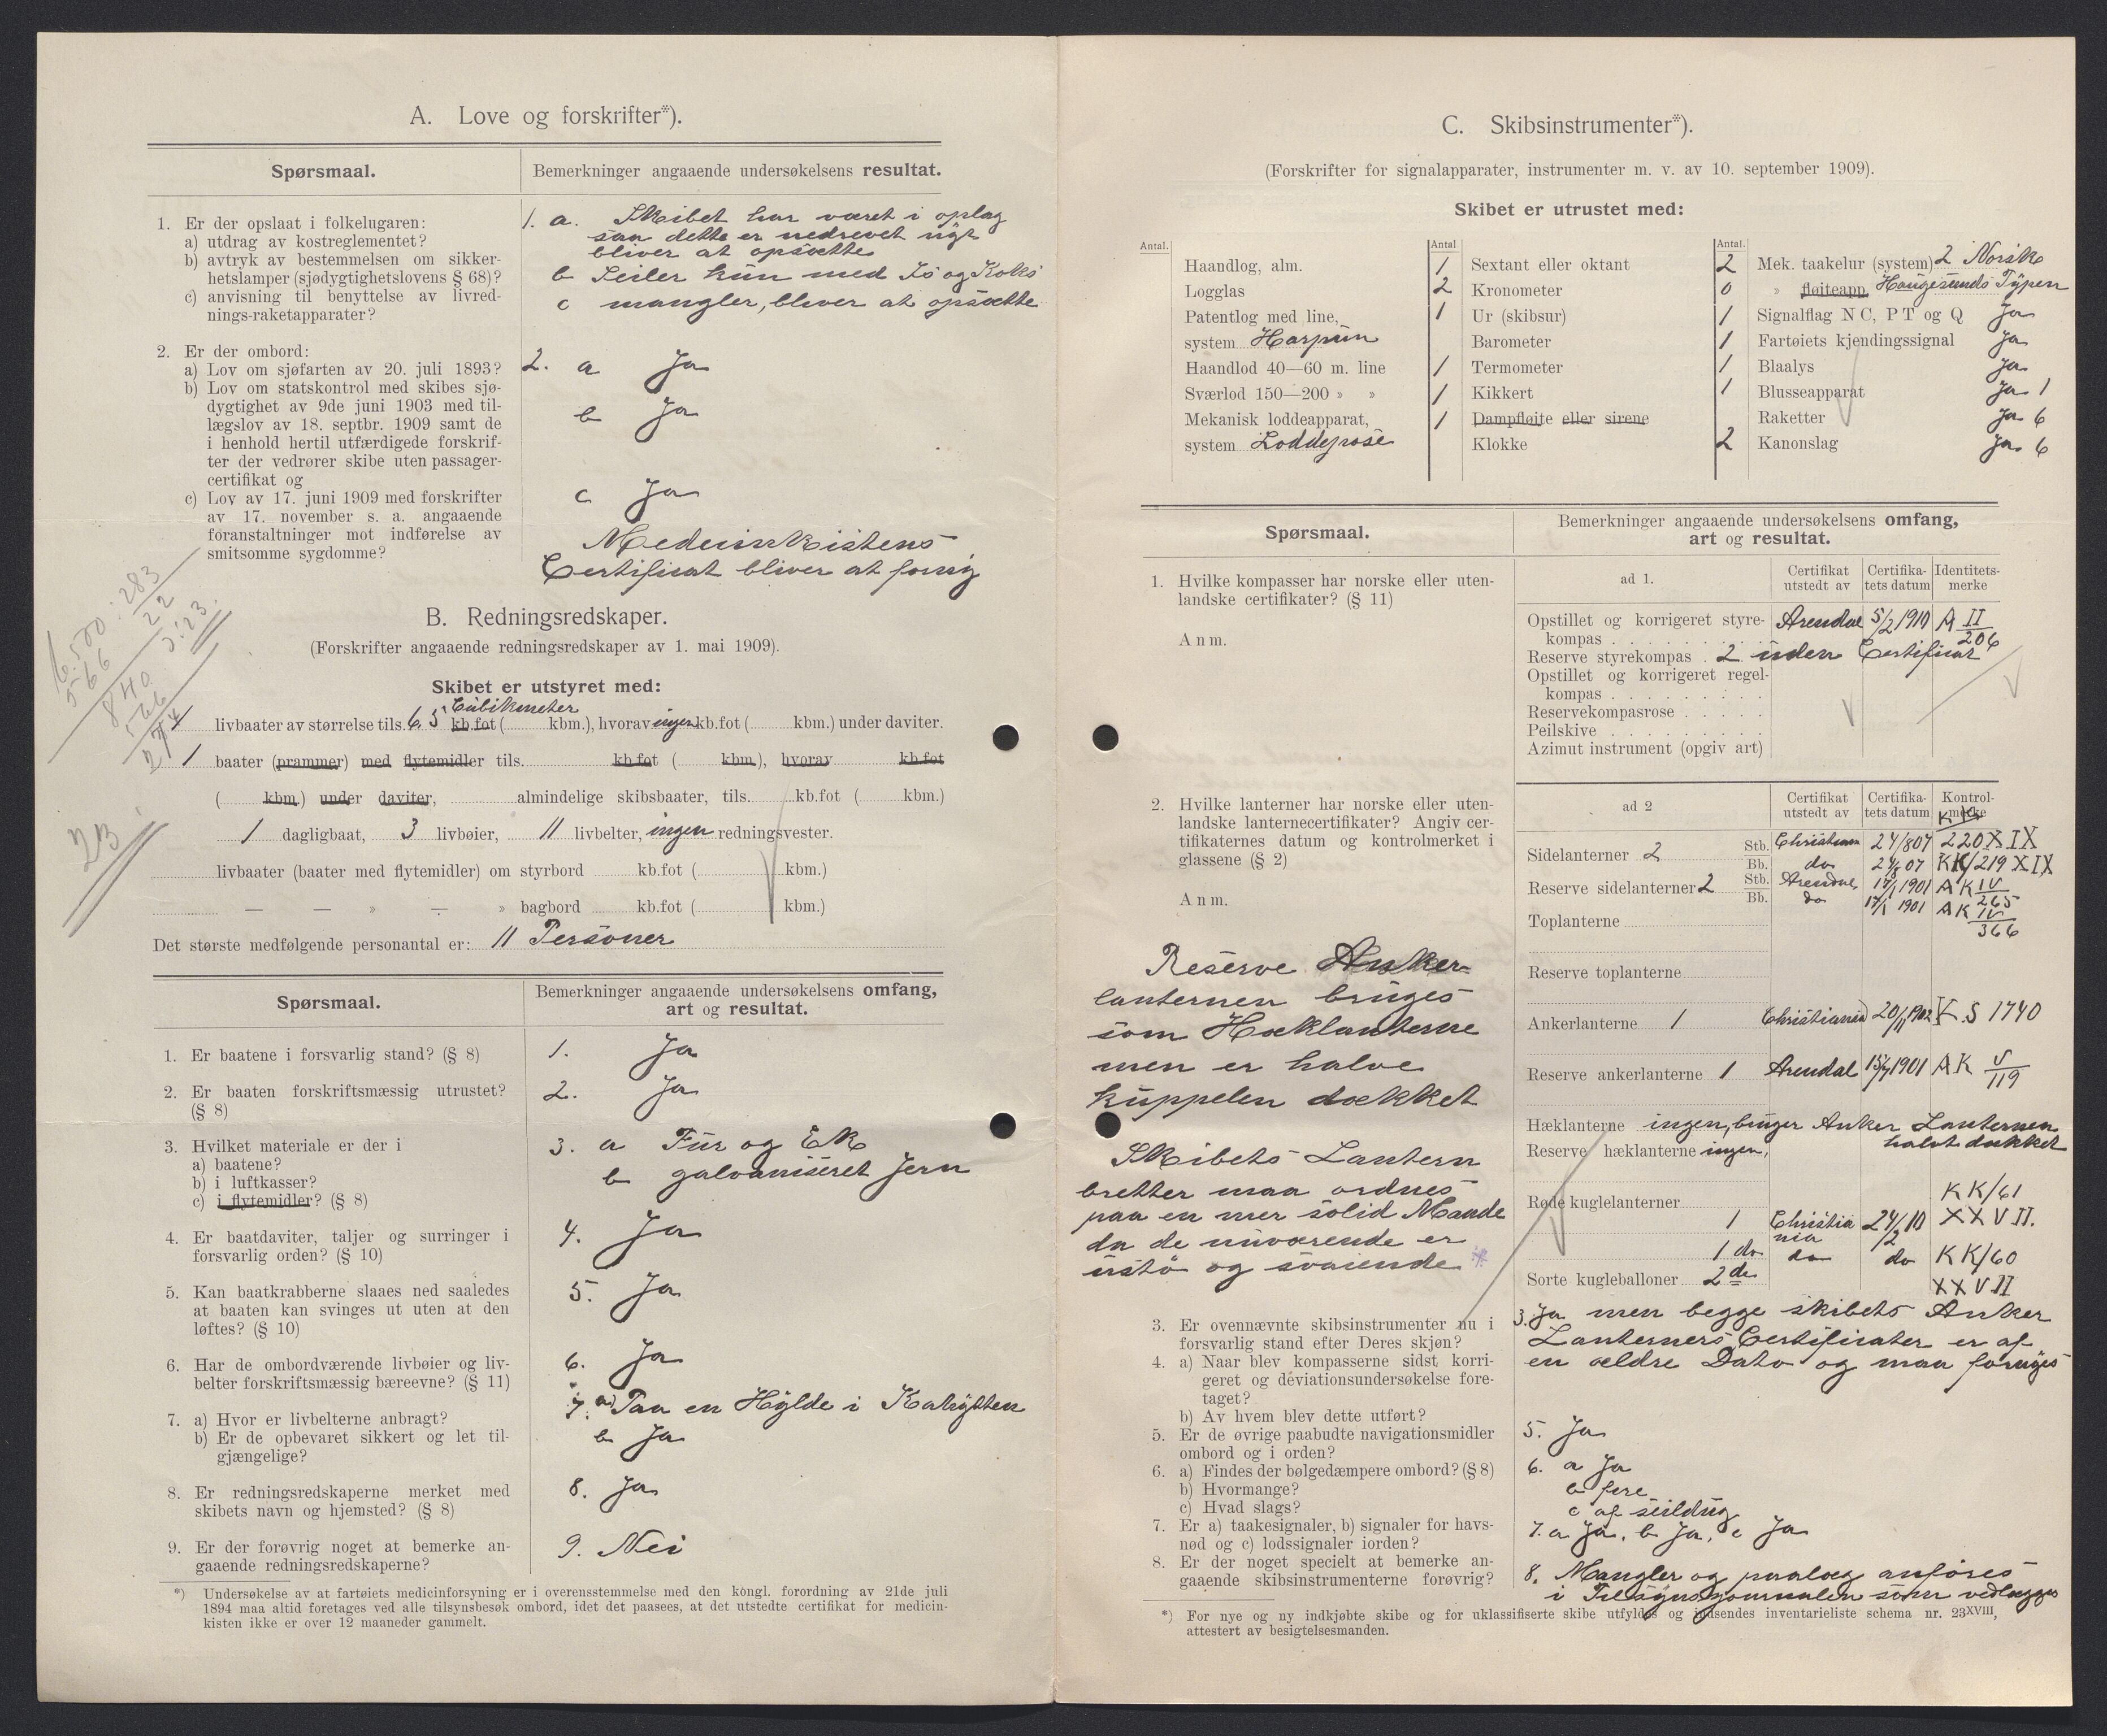 A. Love og forskrifter*).
Spørsmaal.
Bemerkninger angaaende undersøkelsens resultat.
1. Er der opslaat i folkelugaren:
a) utdrag av kostreglementet?
b) avtryk av bestemmelsen om sikker-
hetslamper (sjødygtighetslovens § 68)?
c) anvisning til benyttelse av livred-
nings-raketapparater?
1. a. Skibet har været i oplag
saa dette er nedrevet
bliver at opsætte
b Seiler kun med Is og Koks
c mangler, bliver at opsætte
2. Er der ombord:
a) Lov om sjøfarten av 20. juli 1893?
b) Lov om statskontrol med skibes sjø-
dygtighet av 9de juni 1903 med til-
lægslov av 18. septbr. 1909 samt de
i henhold hertil utfærdigede forskrif-
ter der vedrører skibe uten passager-
certifikat og
c) Lov av 17. juni 1909 med forskrifter
av 17. november s. a. angaaende
foranstaltninger mot indførelse av
smitsomme sygdomme?
2. a Ja
b Ja
c Ja
Medicinkistens
Certificat bliver at forny
B. Redningsredskaper.
(Forskrifter angaaende redningsredskaper av 1. mai 1909).
Skibet er utstyret med:
Cubikmeter
1 livbaater av størrelse tils. 6,5 kb.fot ( kbm.), hvorav ingen kb.fot ( kbm.) under daviter.
1 baater (prammer) med flytemidler tils. kb.fot ( kbm.), hvorav kb.fot
( kbm.) under daviter, almindelige skibsbaater, tils. kb.fot ( kbm.)
1 dagligbaat, 3 livbøier, 11 livbelter, ingen redningsvester.
livbaater (baater med flytemidler) om styrbord kb.fot ( kbm.)
— — » — » bagbord kb.fot ( kbm.)
Det største medfølgende personantal er: 11 Personer
6.500 : 283
566
22
840
566
274
23
Spørsmaal.
Bemerkninger angaaende undersøkelsens omfang,
art og resultat.
1. Er baatene i forsvarlig stand? (§ 8)
1. Ja
2. Er baaten forskriftsmæssig utrustet?
(§ 8)
2. Ja
3. Hvilket materiale er der i
a) baatene?
b) i luftkasser?
c) i flytemidler? (§ 8)
3. a Fur og Ek
b galvaniseret Jern
4. Er baatdaviter, taljer og surringer i
forsvarlig orden? (§ 10)
4. Ja
5. Kan baatkrabberne slaaes ned saaledes
at baaten kan svinges ut uten at den
løftes? (§ 10)
5. Ja
6. Har de ombordværende livbøier og liv-
belter forskriftsmæssig bæreevne? (§ 11)
6. Ja
7. a) Hvor er livbelterne anbragt?
b) Er de opbevaret sikkert og let til-
gjængelige?
7. a) Paa en Hylde i Kahytten
b Ja
8. Er redningsredskaperne merket med
skibets navn og hjemsted? (§ 8)
8. Ja
9. Er der forøvrig noget at bemerke an-
gaaende redningsredskaperne?
9. Nei
*) Undersøkelse av at fartøiets medicinforsyning er i overensstemmelse med den kongl. forordning av 21de juli
1894 maa altid foretages ved alle tilsynsbesøk ombord, idet det paasees, at det utstedte certifikat for medicin-
kisten ikke er over 12 maaneder gammelt.
C. Skibsinstrumenter*).
(Forskrifter for signalapparater, instrumenter m. v. av 10. september 1909).
Skibet er utrustet med:
Antal.
Haandlog, alm.
Logglas
Patentlog med line,
system Harpun
Haandlod 40—60 m. line
Sværlod 150—200 » »
Mekanisk loddeapparat,
system Loddepose
Antal
1 Sextant eller oktant
2 Kronometer
1 Ur (skibsur)
Barometer
1 Termometer
1 Kikkert
1 Dampfløite eller sirene
Klokke
Antal.
2 Mek. taakelur (system) 2 Norsk
0 » fløiteapp. Haugesunds Typen
1 Signalflag N C, P T og Q Ja
1 Fartøiets kjendingssignal Ja
1 Blaalys Ja
1 Blusseapparat Ja 1
Raketter Ja 6
2 Kanonslag Ja 6
Spørsmaal.
Bemerkninger angaaende undersøkelsens omfang,
art og resultat.
1. Hvilke kompasser har norske eller uten-
landske certifikater? (§ 11)
Anm.
ad 1.
Certifikat
utstedt av
Certifika-
tets datum
Identitets-
merke
Opstillet og korrigeret styre-
kompas Arendal 5/2 1910 A II/206
Reserve styrekompas 2 uden Certificat
Opstillet og korrigeret regel-
kompas
Reservekompasrose
Peilskive
Azimut instrument (opgiv art)
2. Hvilke lanterner har norske eller uten-
landske lanternecertifikater? Angiv cer-
tifikaternes datum og kontrolmerket i
glassene (§ 2)
Anm.
ad 2
Certifikat
utstedt av
Certifika-
tets datum
Kontrol-
merke
Sidelanterner 2 Stb. 24/8 07 220 XIX
Bb. do 24/8 07 KK/219 XIX
Reserve sidelanterner 2 Stb. Arendal 1901 AK IV/265
Bb. do 1901 AK IV/366
Toplanterne
Reserve toplanterne
Ankerlanterne 1 Christiania 1740
Reserve ankerlanterne 1 Arendal 1901 AK V/119
Hæklanterne ingen, bruger Anker Lanternen
halvt dækket
Reserve hæklanterne ingen,
Røde kuglelanterner
1 Christiania 24/2 10 KK/61
XXVII.
1 do do do KK/60
XXVII
Sorte kugleballoner 2 de
Reserve Anker-
lanternen bruges
som Hæklanterne
men er halve
kuppelen dækket
Skibets Lantern
bretter maa ordnes
paa en mer solid Maade
da de nuværende er
ustø og svaiende
3. Er ovennævnte skibsinstrumenter nu i
forsvarlig stand efter Deres skjøn?
3. Ja men begge skibets Anker
Lanterners Certificater er af
en ældre Dato og maa fornyes
4. a) Naar blev kompasserne sidst korri-
geret og deviationsundersøkelse fore-
taget?
b) Av hvem blev dette utført?
5. Er de øvrige paabudte navigationsmidler
ombord og i orden?
5. Ja
6. a) Findes der bølgedæmpere ombord? (§ 8)
b) Hvormange?
c) Hvad slags?
6. a Ja
b fire
c af seildug
7. Er a) taakesignaler, b) signaler for havs-
nød og c) lodssignaler iorden?
7. a Ja, b Ja, c Ja
8. Er der noget specielt at bemerke an-
gaaende skibsinstrumenterne forøvrig?
8. Mangler og paalæg anføres
i Tilsynsjournalen som vedlægges
*) For nye og ny indkjøbte skibe og for uklassifiserte skibe utfyldes og indsendes inventarieliste schema nr. 23XVIII,
attestert av besigtelsesmanden.